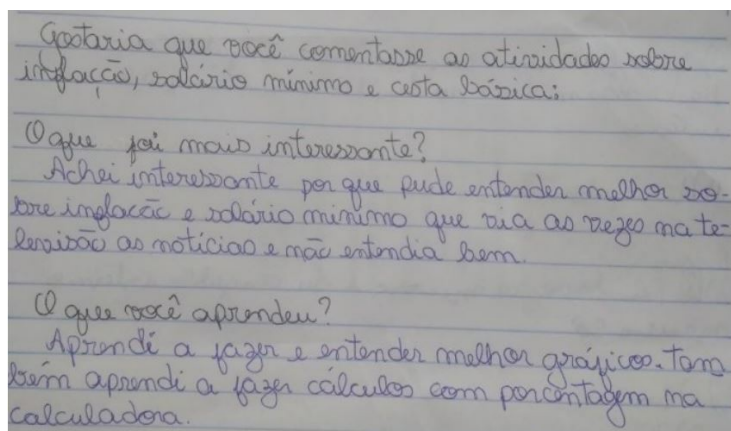 Gostaria que você comentasse as atividades sobre
inflacção, salário mínimo e cesta básica:
O que foi mais interessante?
Achei interessante por que pude entender melhor so-
bre inflacção e salário minimo que via as vezes na te-
levisão as notícias e não entendia bem.
O que você aprendeu?
Aprendi a fazer e entender melhor gráficos. Tam
bém aprendi a fazer cálculos com porcentagem na
calculadora.